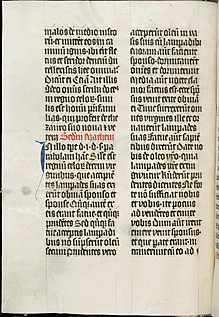 malos de medio iusto
rū et mittēt eos in ca
minū ignis ibi erit fle
tus et stridor dentiū In
tellexistis hec omnia Di
cunt ei Etiā Ait illis
Ideo omnis scriba doctus
in regno celoꝝ simi
lis est homini pr̄i fami
lias qui profert de the
zauro suo noua et ve
tera Scdm matheū
In illo tpr̄ d i d s pa
rabolam hāc Sile est
regnū celoꝝ decem vir
ginibus que accipiētes
lampades suas exi
erūt obuiā sponso et
sponse Quīqꝫ aut ex
eis erant fatue et quīqꝫ
prudētes Sed quīqꝫ fa
tue acceptis lampadi
bus nō sūpserūt oleū
secum prudentes vero
acceperūt oleū in va
sis suis cū lampadibus
sponso dormitauerūt
omēs et dormierunt
Media autē nocte cla
mor factus est ecce spō
sus venit exite obuiā
ei Tunc surrexerūt om
nes virgines ille et or
nauerūt lampades
suas Fatue autē sapiē
tibus dixerūt date no
bis de oleo vr̄o quia
lampades nr̄e extin
guntur Rn̄derūt pru
dentes dicentes Ne for
te nō sufficiat nobis
et vobis ite potius
ad vendētes et emite
vobis Dum autē irent
emere venit sponsus
et que parate erant in
trauerunt cū eo ad